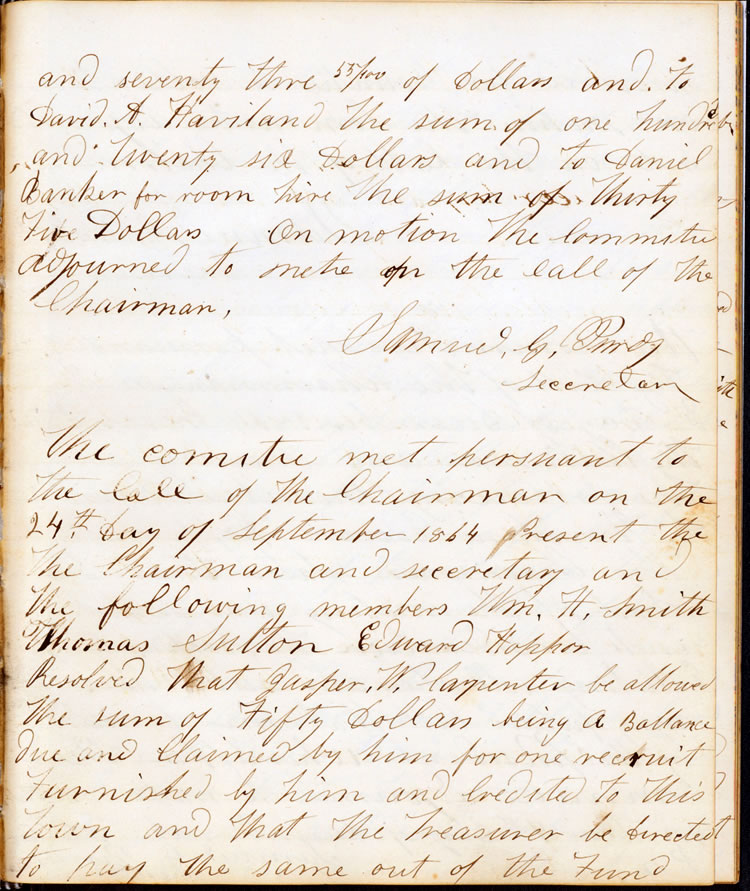 and seventy thre 55/100 of Dollars and. to
David. A. Haviland the sum of one hundred
and twenty six Dollars and to Daniel
Banker for room hire the sum of thirty
five Dollars. On motion the Commitie
adjourned to mete on the call of the
Chairman,
Samuel. G. Purdy
Seccretary
The comitie met persuant to
the Call of the Chairman on the
24th Day of September 1864 Present the
the Chairman and seccretary and
the following members Wm. H. Smith
Thomas Sutton Edward Hoppor
Resolved that Jasper. W. Carpenter be allowed
the sum of Fifty Dollars being a Ballance
due and Claimed by him for one recruit
Furnished by him and Credited to this
town and that the Treasurer be directed
to pay the same out of the Fund